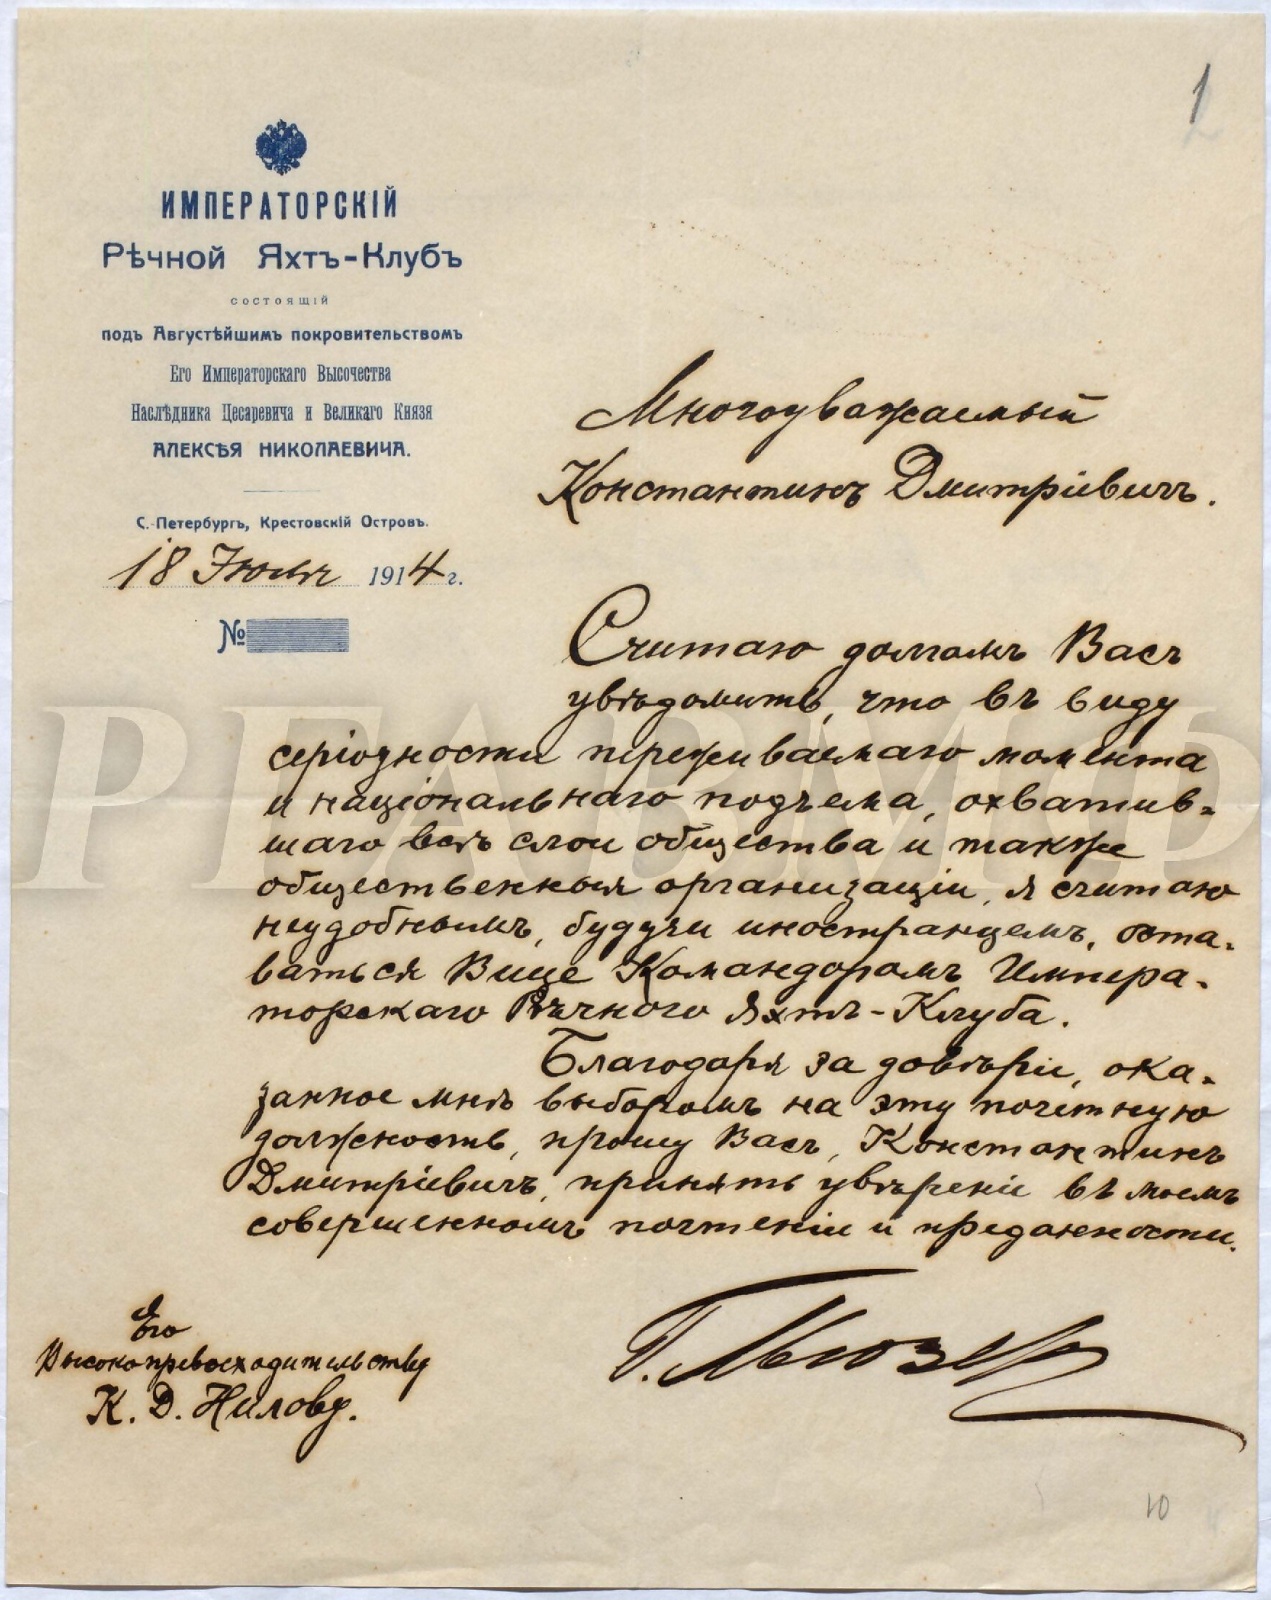 1
ИМПЕРАТОРСКІЙ
Рѣчной Яхтъ-Клубъ
состоящій
подъ Августѣйшимъ покровительствомъ
Его Императорскаго Высочества
Наслѣдника Цесаревича и Великаго Князя
АЛЕКСѢЯ НИКОЛАЕВИЧА.
С.-Петербургъ, Крестовскій Островъ.
18 Іюля 1914 г.
№
Многоуважаемый
Константинъ Дмитріевичъ.
Считаю долгомъ Васъ
увѣдомить, что въ виду
серіозности переживаемаго момента
и національнаго подъема, охватив-
шаго всѣ слои общества и также
общественныя организаціи, я считаю
неудобнымъ, будучи иностранцемъ, оста-
ваться Вице Командоромъ Импера-
торскаго Рѣчного Яхтъ-Клуба.
Благодаря за довѣріе, ока-
занное мнѣ выборомъ на эту почетную
должность, прошу Васъ, Константинъ
Дмитріевичъ, принять увѣреніе въ моемъ
совершенномъ почтеніи и преданности.
Его
Высокопревосходительству
К. Д. Нилову.
10
РГАВМФ